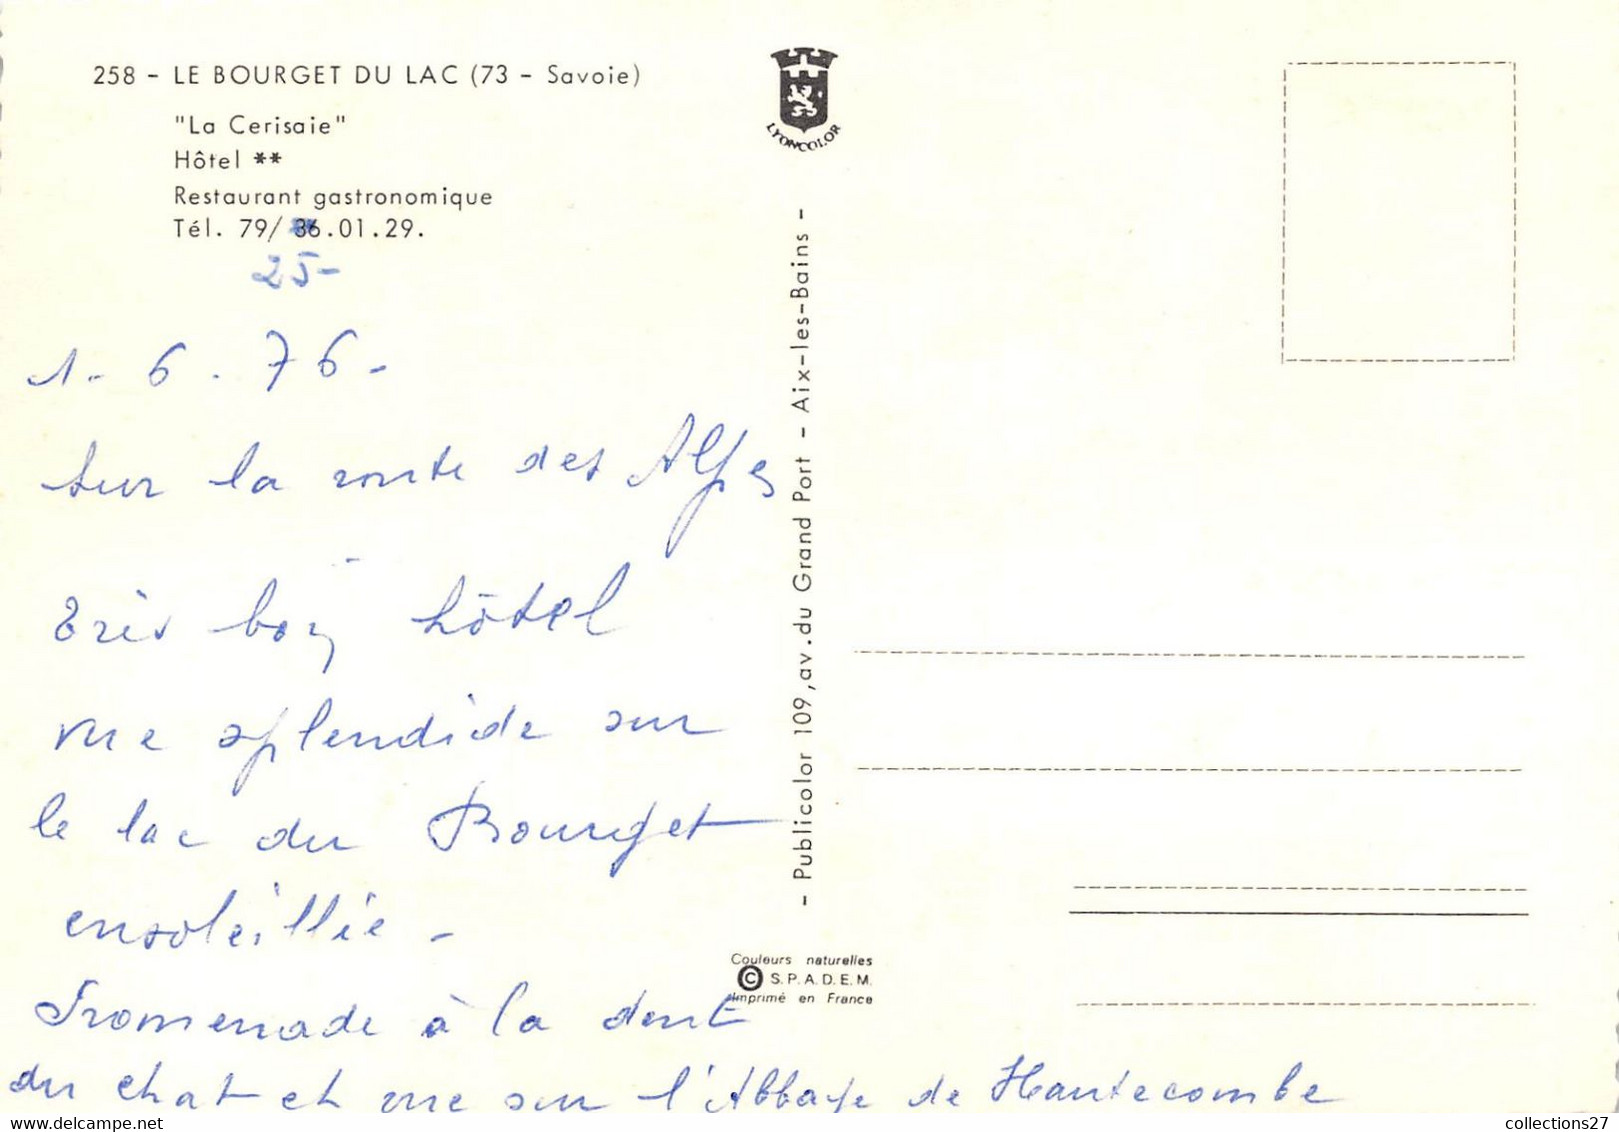 258 - LE BOURGET DU LAC (73 - Savoie)
"La Cerisaie"
Hôtel **
Restaurant gastronomique
Tél. 79/ 36.01.29.
25-
1-6.76-
Sur la route des Alpes
très bon hôtel
vue splendide sur
le lac du Bourget
ensoleillée -
Promenade à la dent
du chat et vue sur l'Abbaye de Hautecombe
LYONCOLOR
- Publicolor 109, av. du Grand Port - Aix-les-Bains -
Couleurs naturelles
© S.P.A.D.E.M.
Imprimé en France
collections27